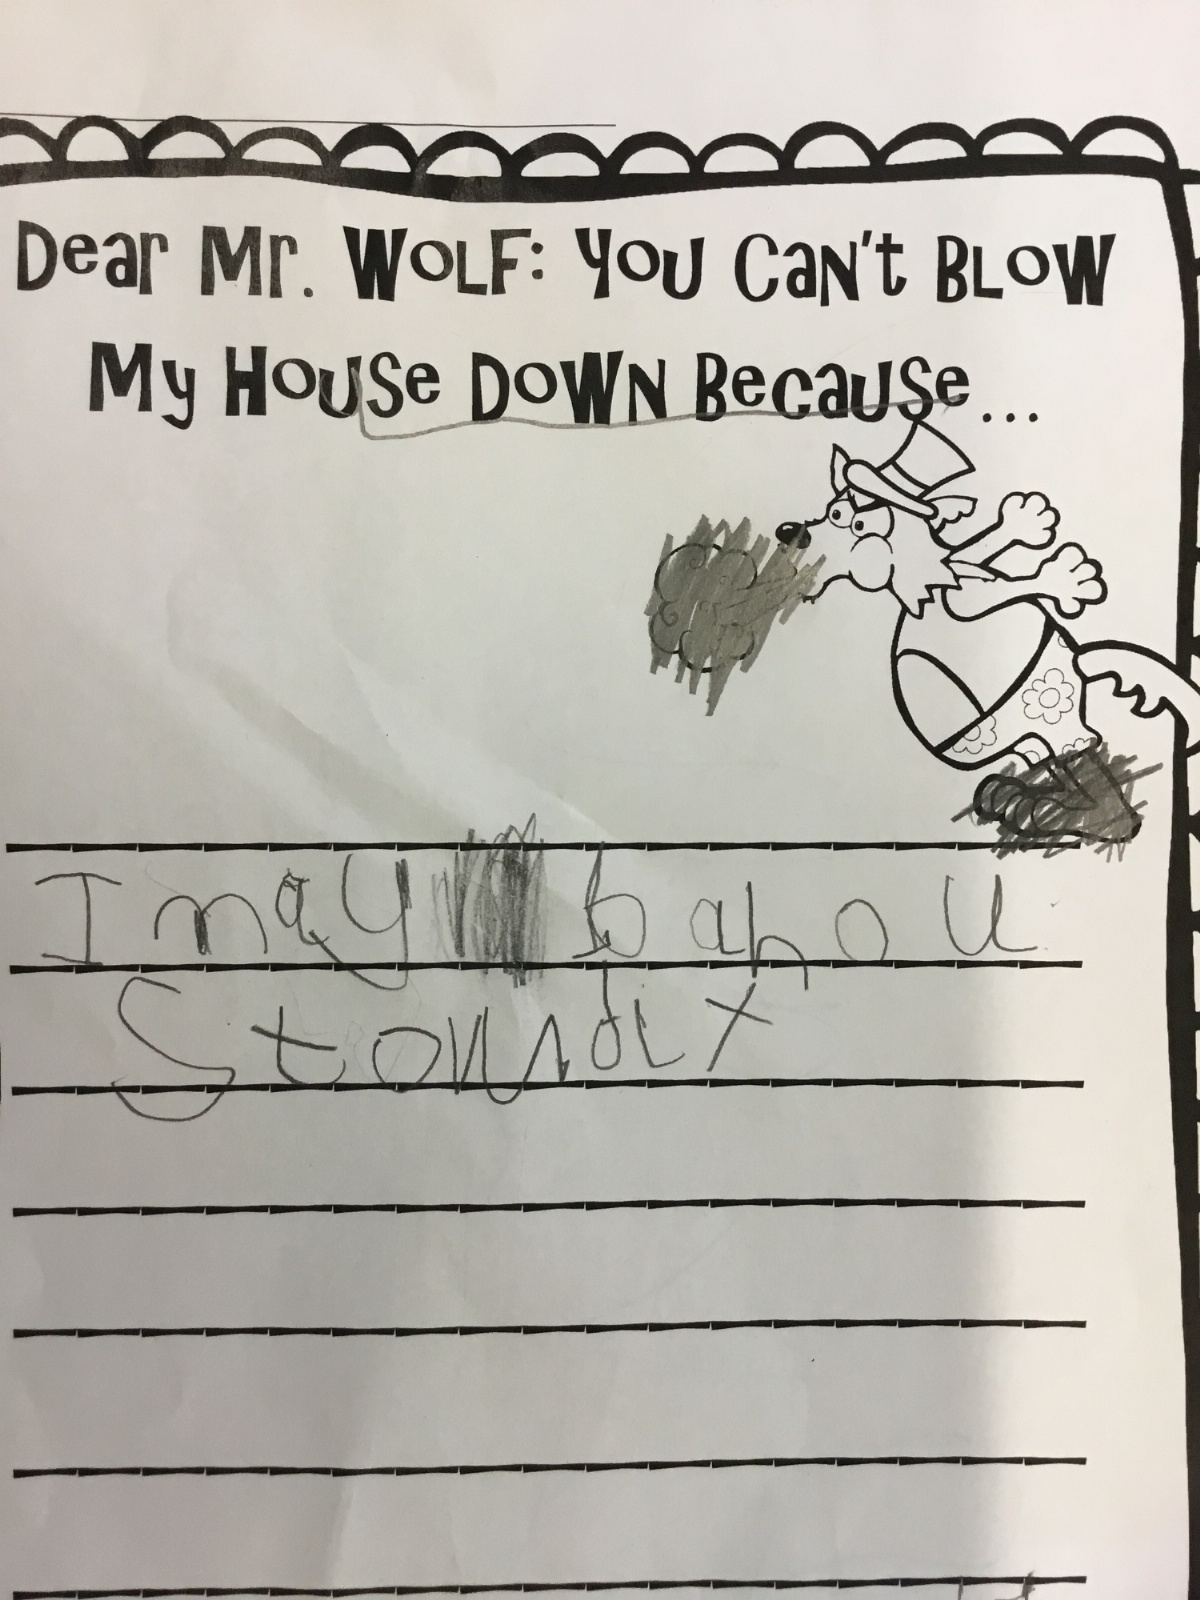 Dear Mr. WOLF: YOU CaN't BLOW
My HOUSe DOWN BecaUSe...
I may b a h o u